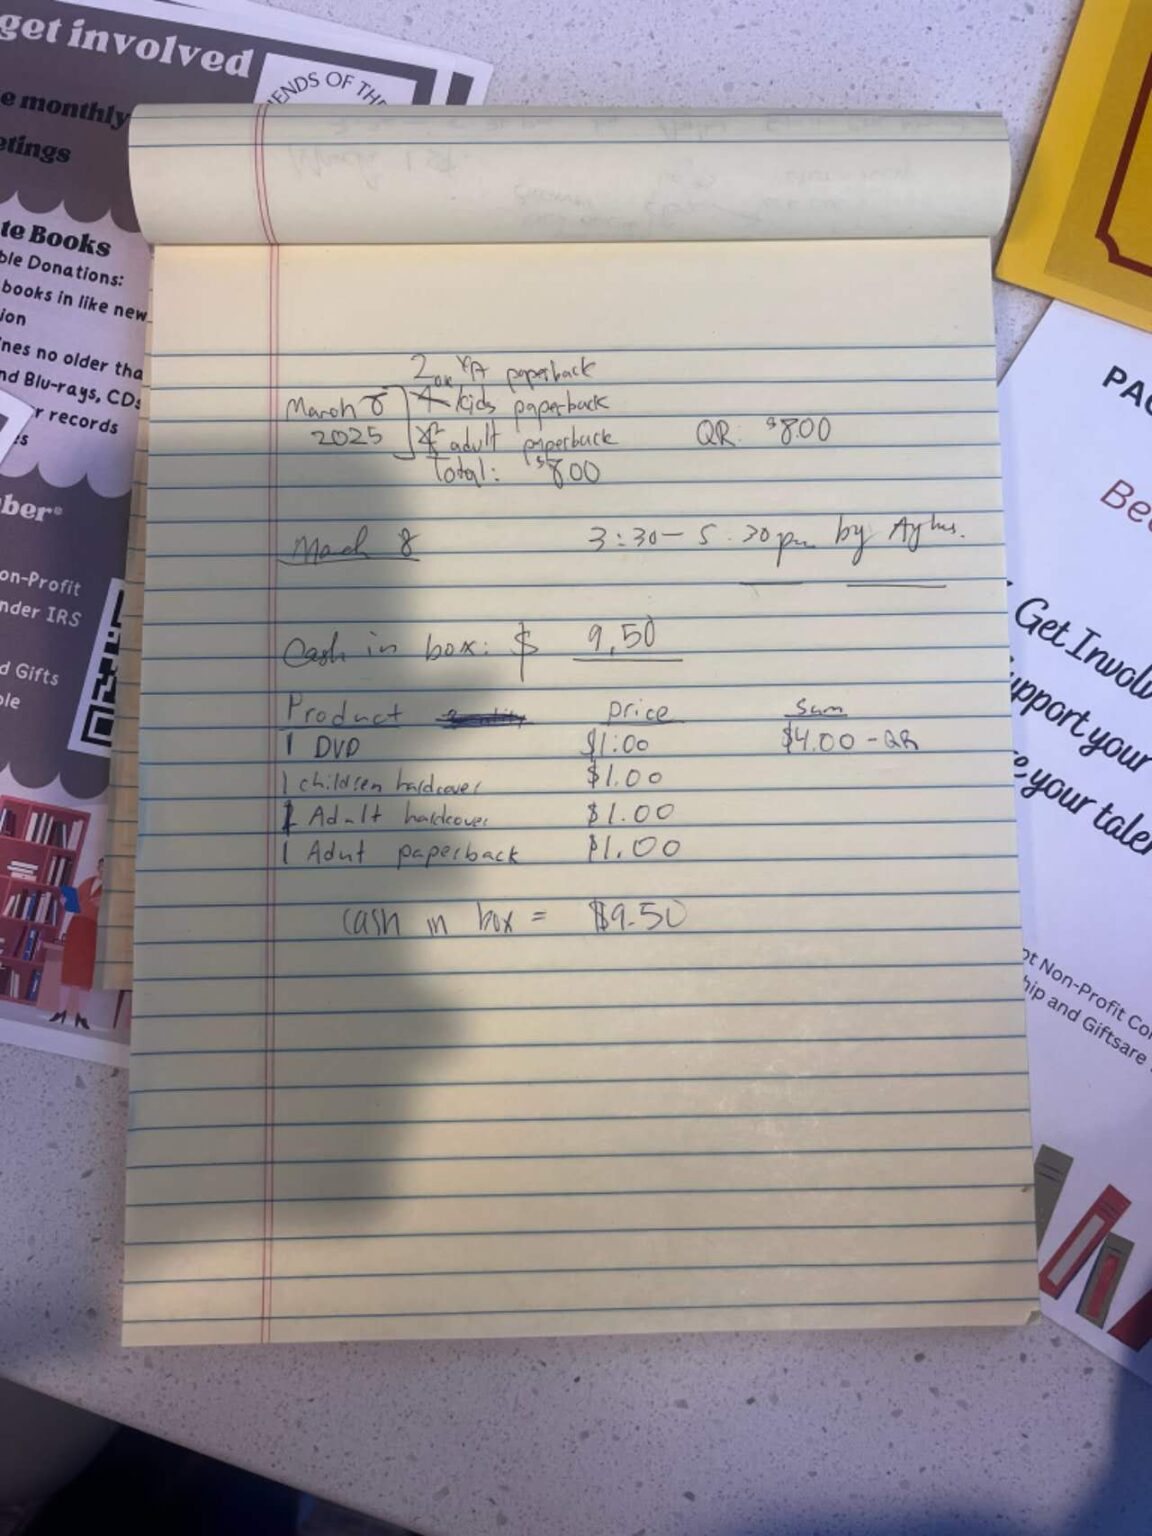 get involved
ENDS OF THE
e monthly
etings
te Books
ble Donations:
books in like new
ion
nes no older tha
nd Blu-rays, CDs
r records
s
ber®
on-Profit
nder IRS
d Gifts
ble
2 YA paperback
March 8 kids paperback
2025 adult paperback QR: $8.00
Total: $8.00
March 8 3:30 - 5:30pm by
Cash in box: $ 9.50
Product price Sum
1 DVD $1.00 $4.00 - QR
1 children hardcover $1.00
1 Adult hardcover $1.00
1 Adult paperback $1.00
cash in box = $9.50
PAC
Bec
Get Involv
upport your
e your talen
pt Non-Profit Co
hip and Giftsare